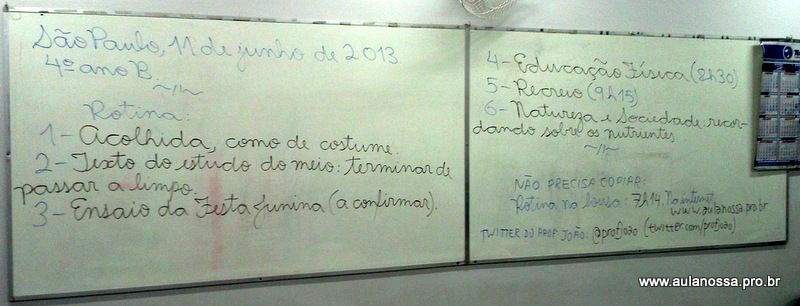 São Paulo, 11 de junho de 2013
4º ano B.
~//~
Rotina:
1- Acolhida, como de costume.
2- Texto do estudo do meio: terminar de
passar a limpo.
3- Ensaio da Festa Junina (a confirmar).
4- Educação Física (8h30)
5- Recreio (9h15)
6- Natureza e Sociedade: recor-
dando sobre os nutrientes
~//~
NÃO PRECISA COPIAR:
Rotina na lousa: 7h14. Na internet,
www.aulanossa.pro.br
TWITTER DO PROF. JOÃO: @profjoao (twitter.com/profjoao)
www.aulanossa.pro.br